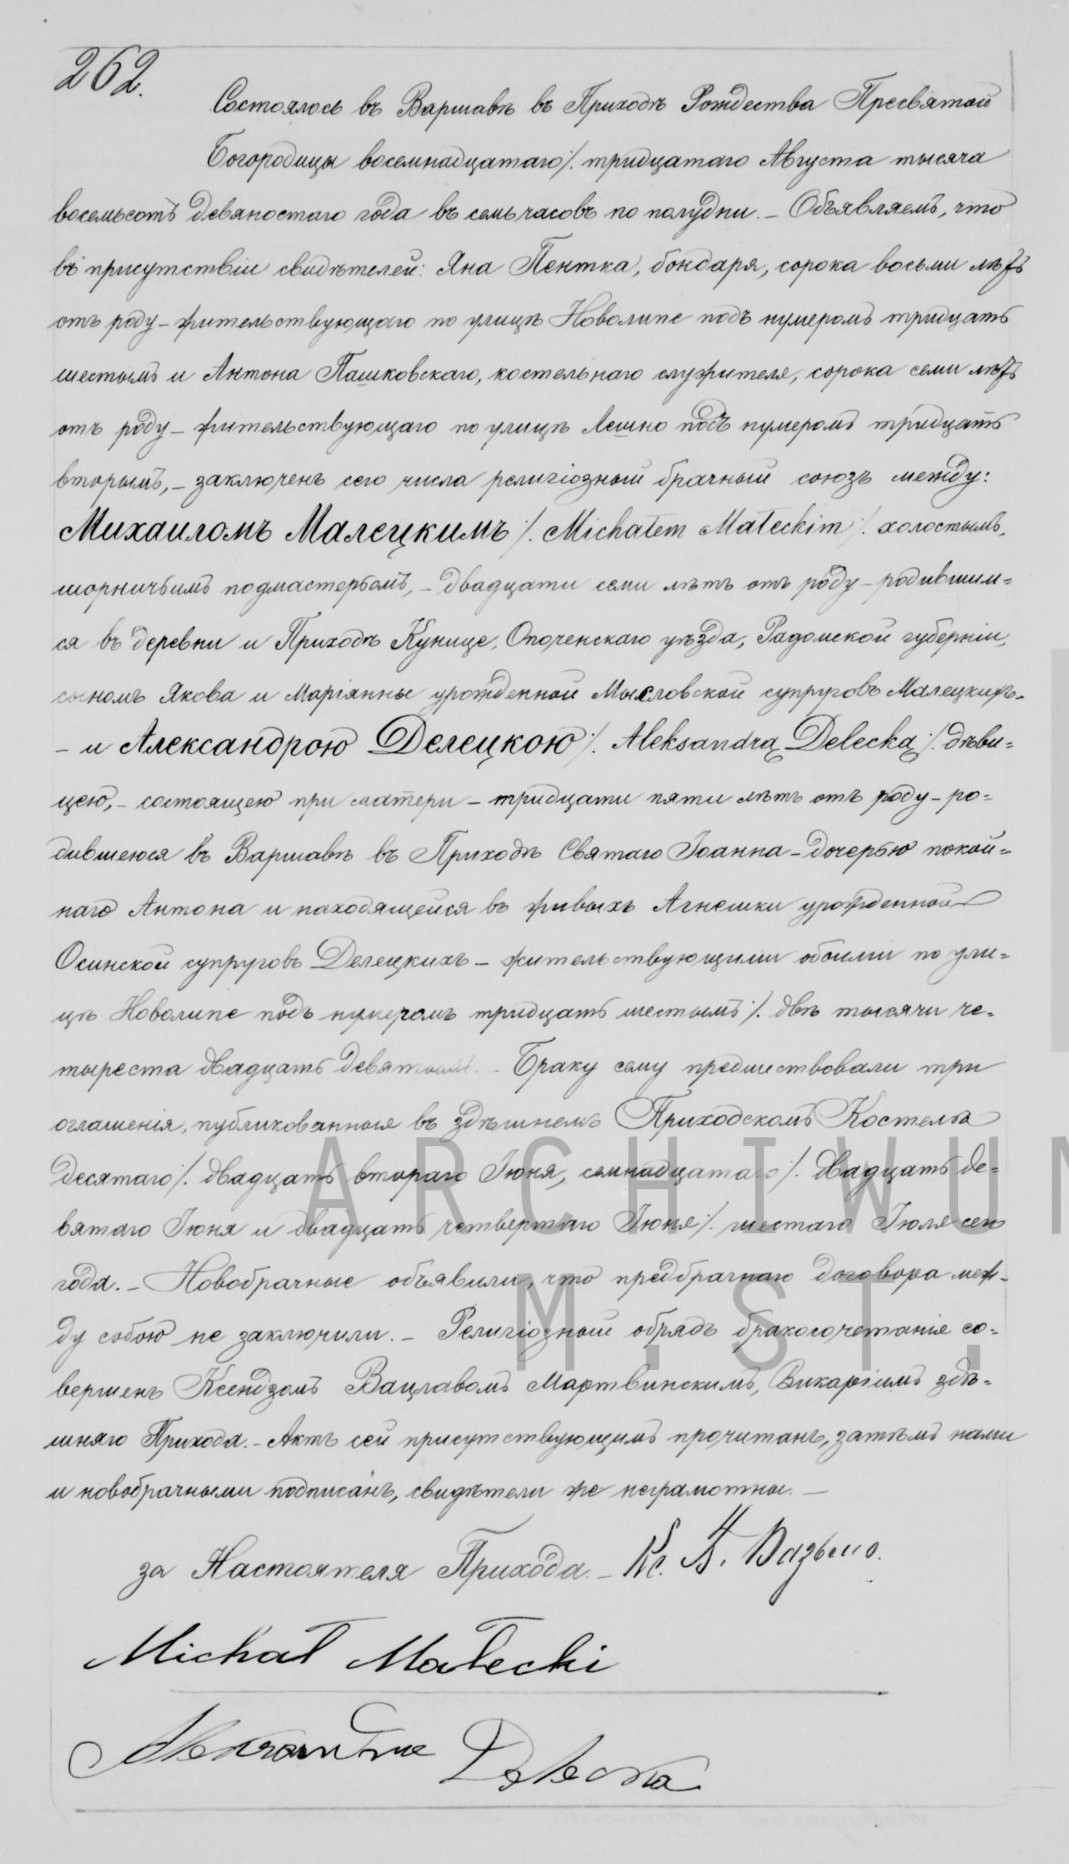 262.
Состоялось въ Варшавѣ въ Приходѣ Рождества Пресвятой
Богородицы восемнадцатаго /. тридцатаго Августа тысяча
восемьсотъ девяностаго года въ семь часовъ по полудни. – Объявляемъ, что
въ присутствіи свидѣтелей: Яна Пентка, бондаря, сорока восьми лѣтъ
отъ роду – жительствующаго по улицѣ Новолипе подъ нумеромъ тридцать
шестымъ и Антона Пашковскаго, костельнаго служителя, сорока семи лѣтъ
отъ роду – жительствующаго по улицѣ Лешно подъ нумеромъ тридцать
вторымъ, – заключенъ сего числа религіозный брачный союзъ между:
Михаиломъ Малецкимъ /. Michałem Małeckim /. холостымъ,
шорничьимъ подмастерьемъ, – двадцати семи лѣтъ отъ роду – родившим=
ся въ деревни и Приходѣ Кунице, Опоченскаго уѣзда, Радомской губерніи,
сыномъ Якова и Маріянны урожденной Мысловской супруговъ Малецкихъ –
– и Александрою Делецкою /. Aleksandrą Delecką /. дѣви=
цею, – состоящею при матери – тридцати пяти лѣтъ отъ роду – ро=
дившеюся въ Варшавѣ въ Приходѣ Святаго Іоанна – дочерью покой=
наго Антона и находящейся въ живыхъ Агнешки урожденной
Осинской супруговъ Делецкихъ – жительствующими обоими по ули=
цѣ Новолипе подъ нумеромъ тридцать шестымъ /. двѣ тысячи че=
тыреста двадцать девятымъ. – Браку сему предшествовали три
оглашенія, публикованныя въ здѣшнемъ Приходскомъ Костелѣ
десятаго /. двадцать втораго Іюня, семнадцатаго /. двадцать де=
вятаго Іюня и двадцать четвертаго Іюня /. шестаго Іюля сего
года. – Новобрачные объявили, что предбрачнаго договора меж=
ду собою не заключили. – Религіозный обрядъ бракосочетанія со=
вершенъ Ксендзомъ Вацлавомъ Мартвинскимъ, Викаріемъ здѣ=
шняго Прихода. – Актъ сей присутствующимъ прочитанъ, затѣмъ нами
и новобрачными подписанъ, свидѣтели же неграмотны. –
за Настоятеля Прихода. – Кс. А.
Michał Małecki
Aleksandra Delecka
ARCHIWUM
M. ST.